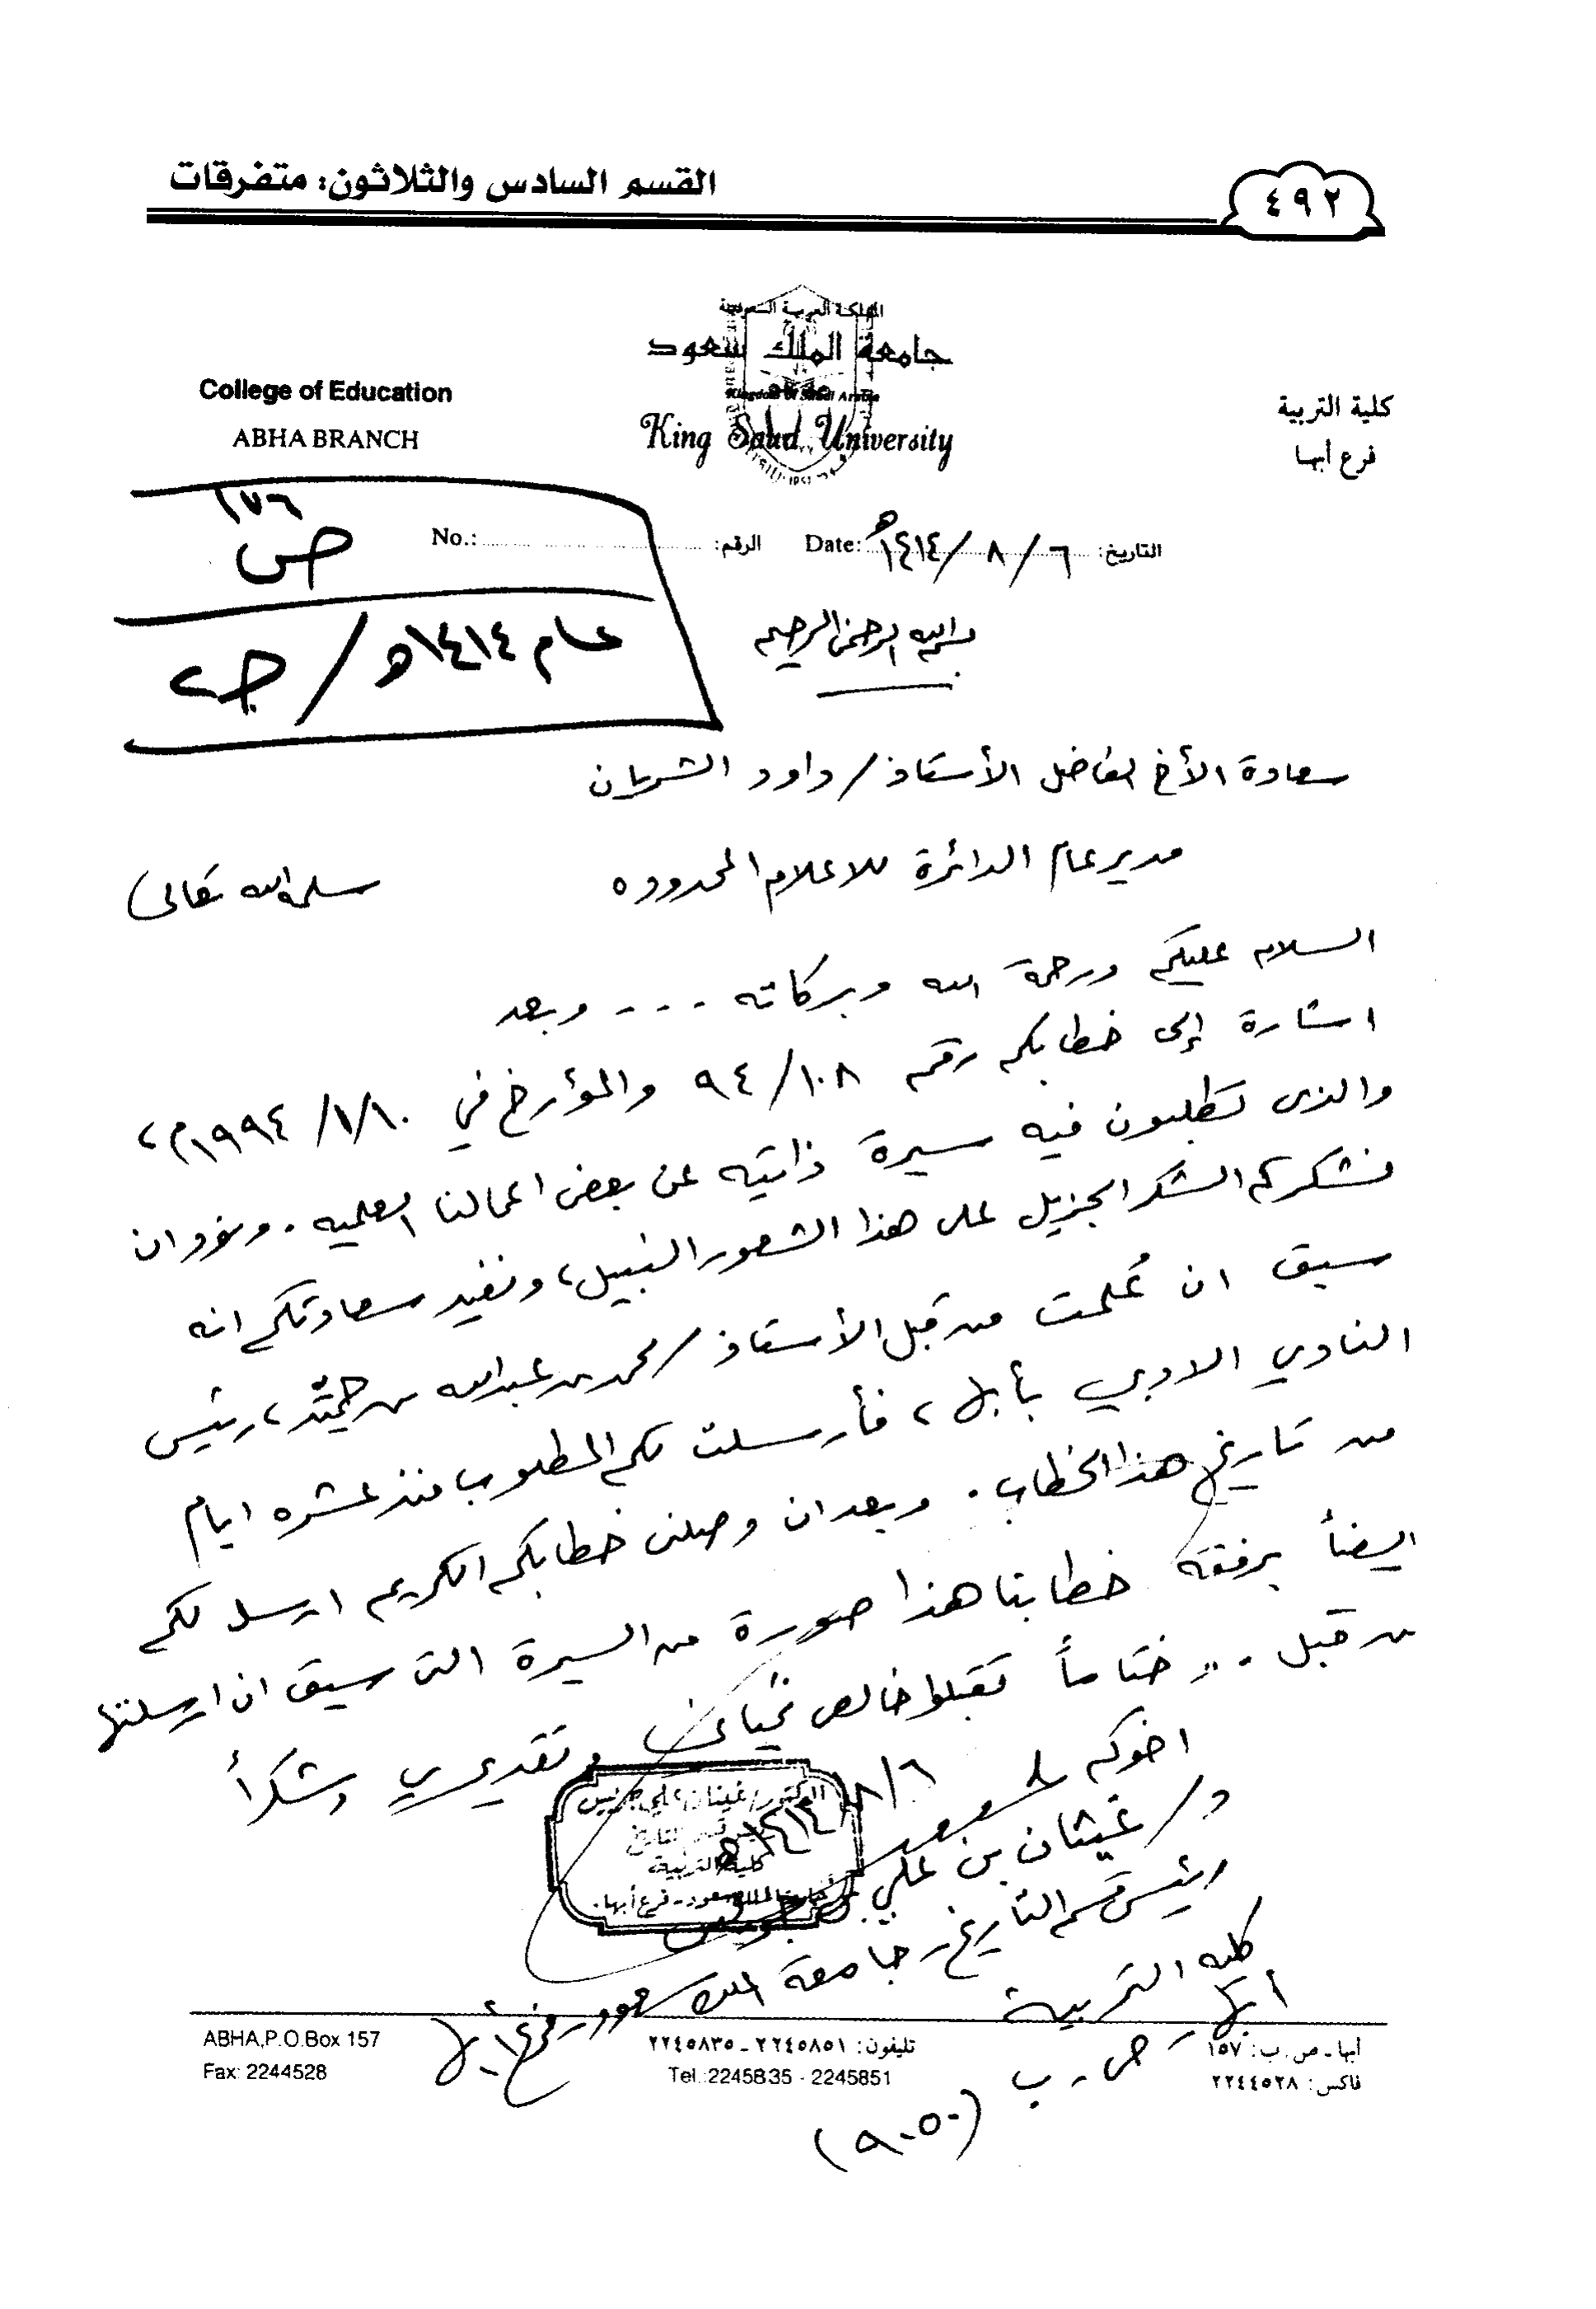 القسم السادس والثلاثون: متفرقات
٤٩٢
المملكة العربية السعودية
جامعة الملك سعود
Kingdom of Saudi Arabia
King Saud University
College of Education
ABHA BRANCH
كلية التربية
فرع أبها
التاريخ: ٦ / ٨ / ١٤١٤هـ Date:
الرقم: No.:
١٧٦
ص
عام ١٤١٤هـ / جـ٢
بسم الله الرحمن الرحيم
سعادة الأخ الفاضل الأستاذ / داود الشريان
مدير عام الدائرة للاعلام المحدوده سلمه الله تعالى
السلام عليكم ورحمة الله وبركاته - - - وبعد
اشارة إلى خطابكم رقم ٩٤/١٠٨ والمؤرخ في ١٠/١/١٩٩٤م،
والذى تطلبون فيه سيرة ذاتيه عن بعض اعمالنا العلميه. ونود ان
نشكركم الشكر الجزيل على هذا الشعور النبيل، ونفيد سعادتكم انه
سبق ان عُلمت من قبل الأستاذ / محمد بن عبدالله بن حميّد، رئيس
النادي الادبي بأبها، فأرسلت لكم المطلوب منذ عشره ايام
من تاريخ هذا الخطاب. وبعد ان وصلنى خطابكم الكريم ارسل لكم
ايضاً برفقة خطابنا هذا صورة من السيرة التى سبق ان ارسلتها
من قبل .. ختاماً تقبلوا خالص تحياتى وتقديري وشكراً
اخوكم
٦/٨/١٤١٤هـ
د/ غيثان بن علي بن جريس
رئيس قسم التاريخ - جامعة الملك سعود - فرع أبها
كليه التربية
أبها - ص.ب (٩٠٥٠)
الدكتور/ غيثان علي جريس
رئيس قسم التاريخ
كلية التربية
جامعة الملك سعود - فرع أبها.
ABHA,P.O.Box 157
Fax: 2244528
تليفون: ٢٢٤٥٨٥١ - ٢٢٤٥٨٣٥
Tel.:2245835 - 2245851
أبها - ص. ب: ١٥٧
فاكس: ٢٢٤٤٥٢٨